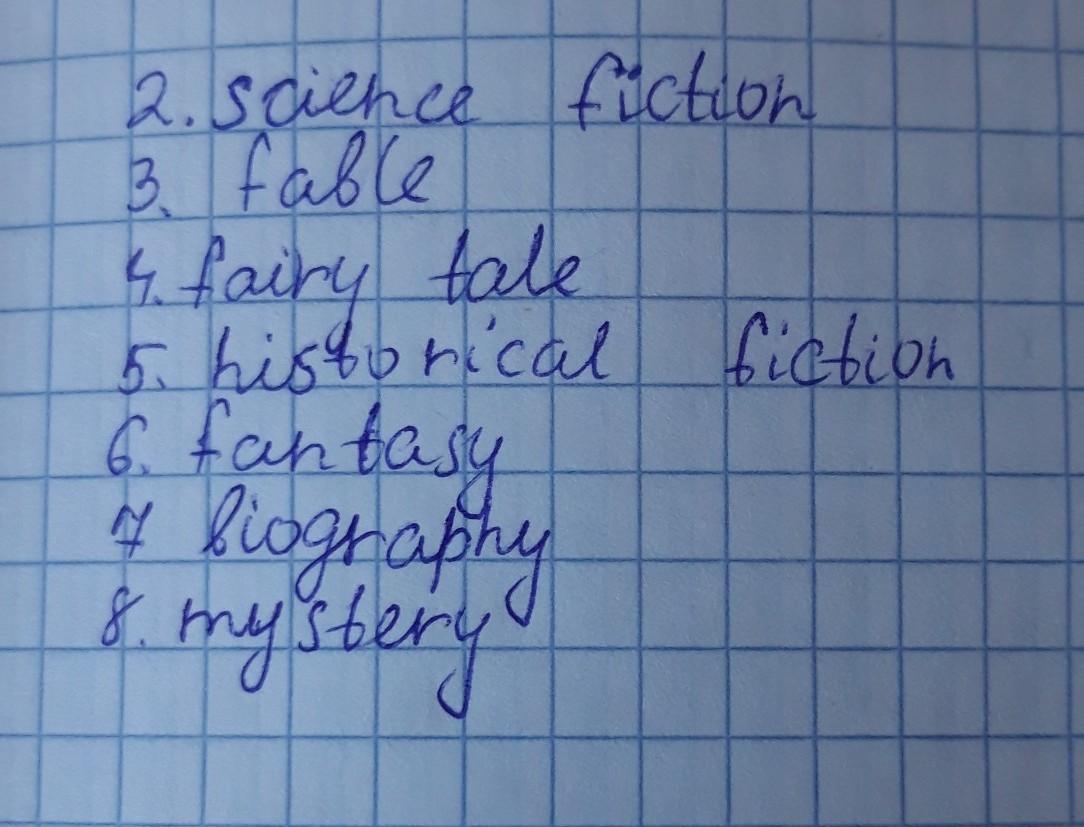 2. science fiction
3. fable
4. fairy tale
5. historical fiction
6. fantasy
7 biography
8. mystery